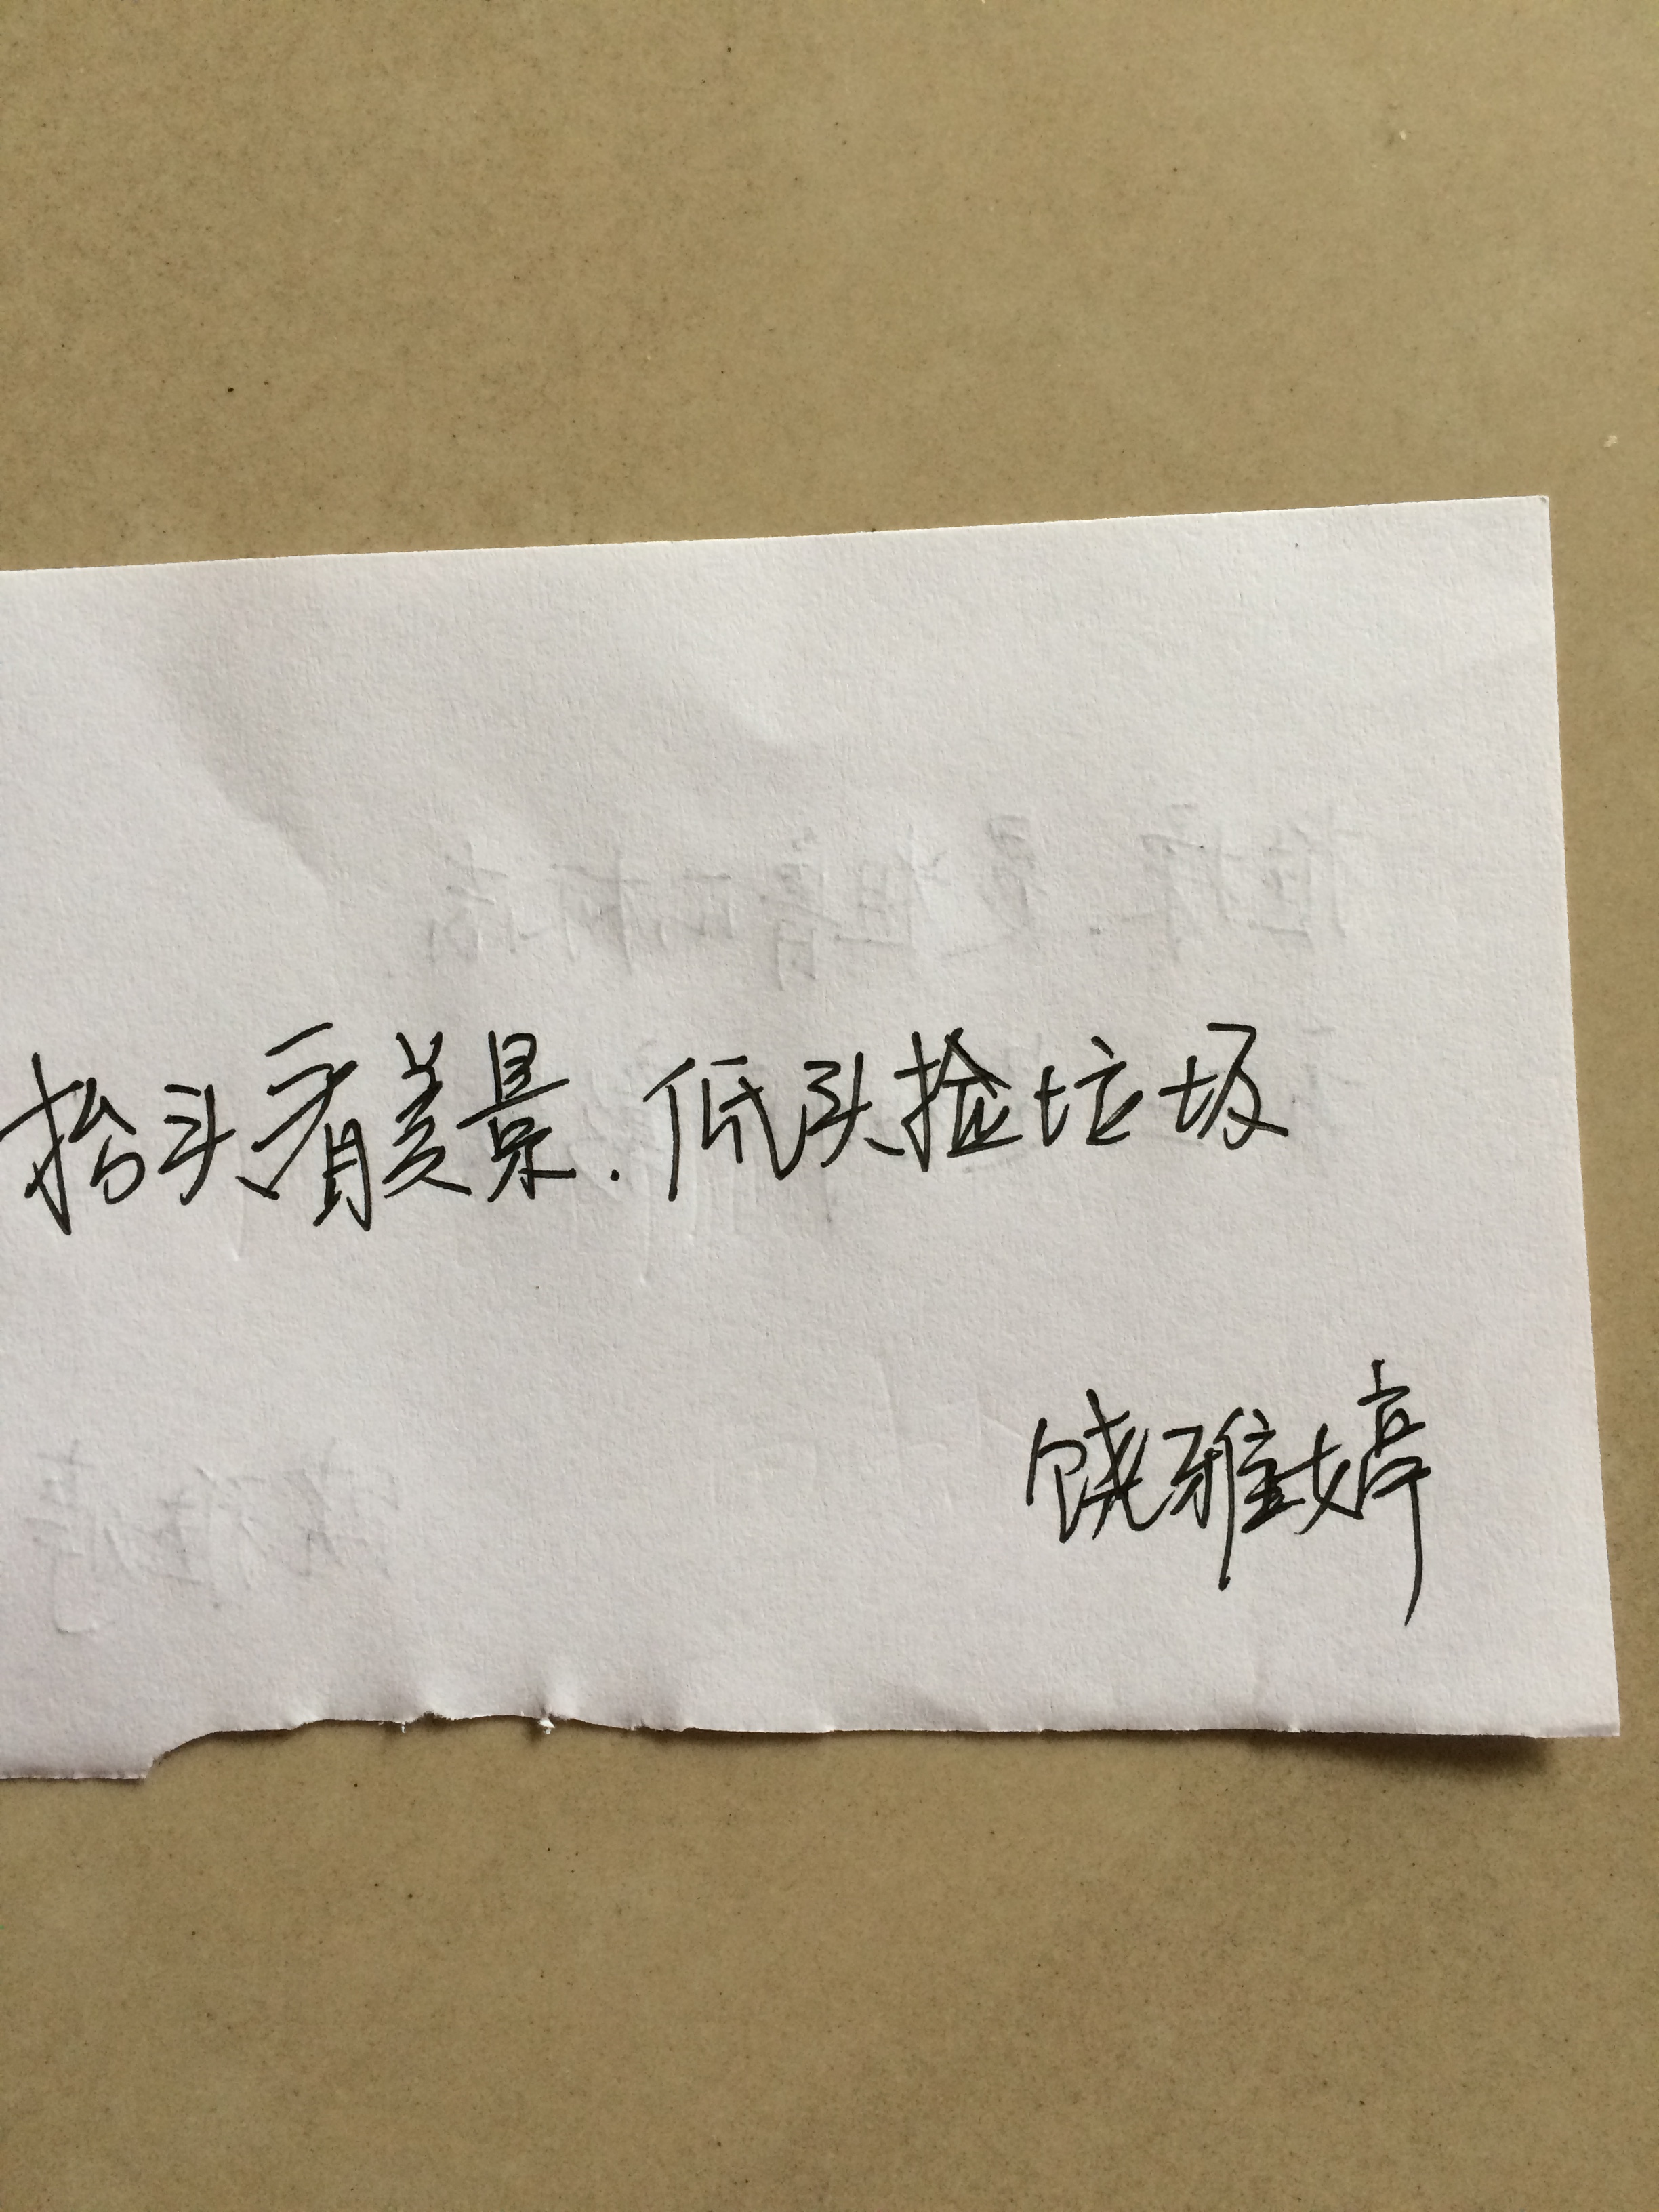 抬头看美景.低头捡垃圾
饶雅婷